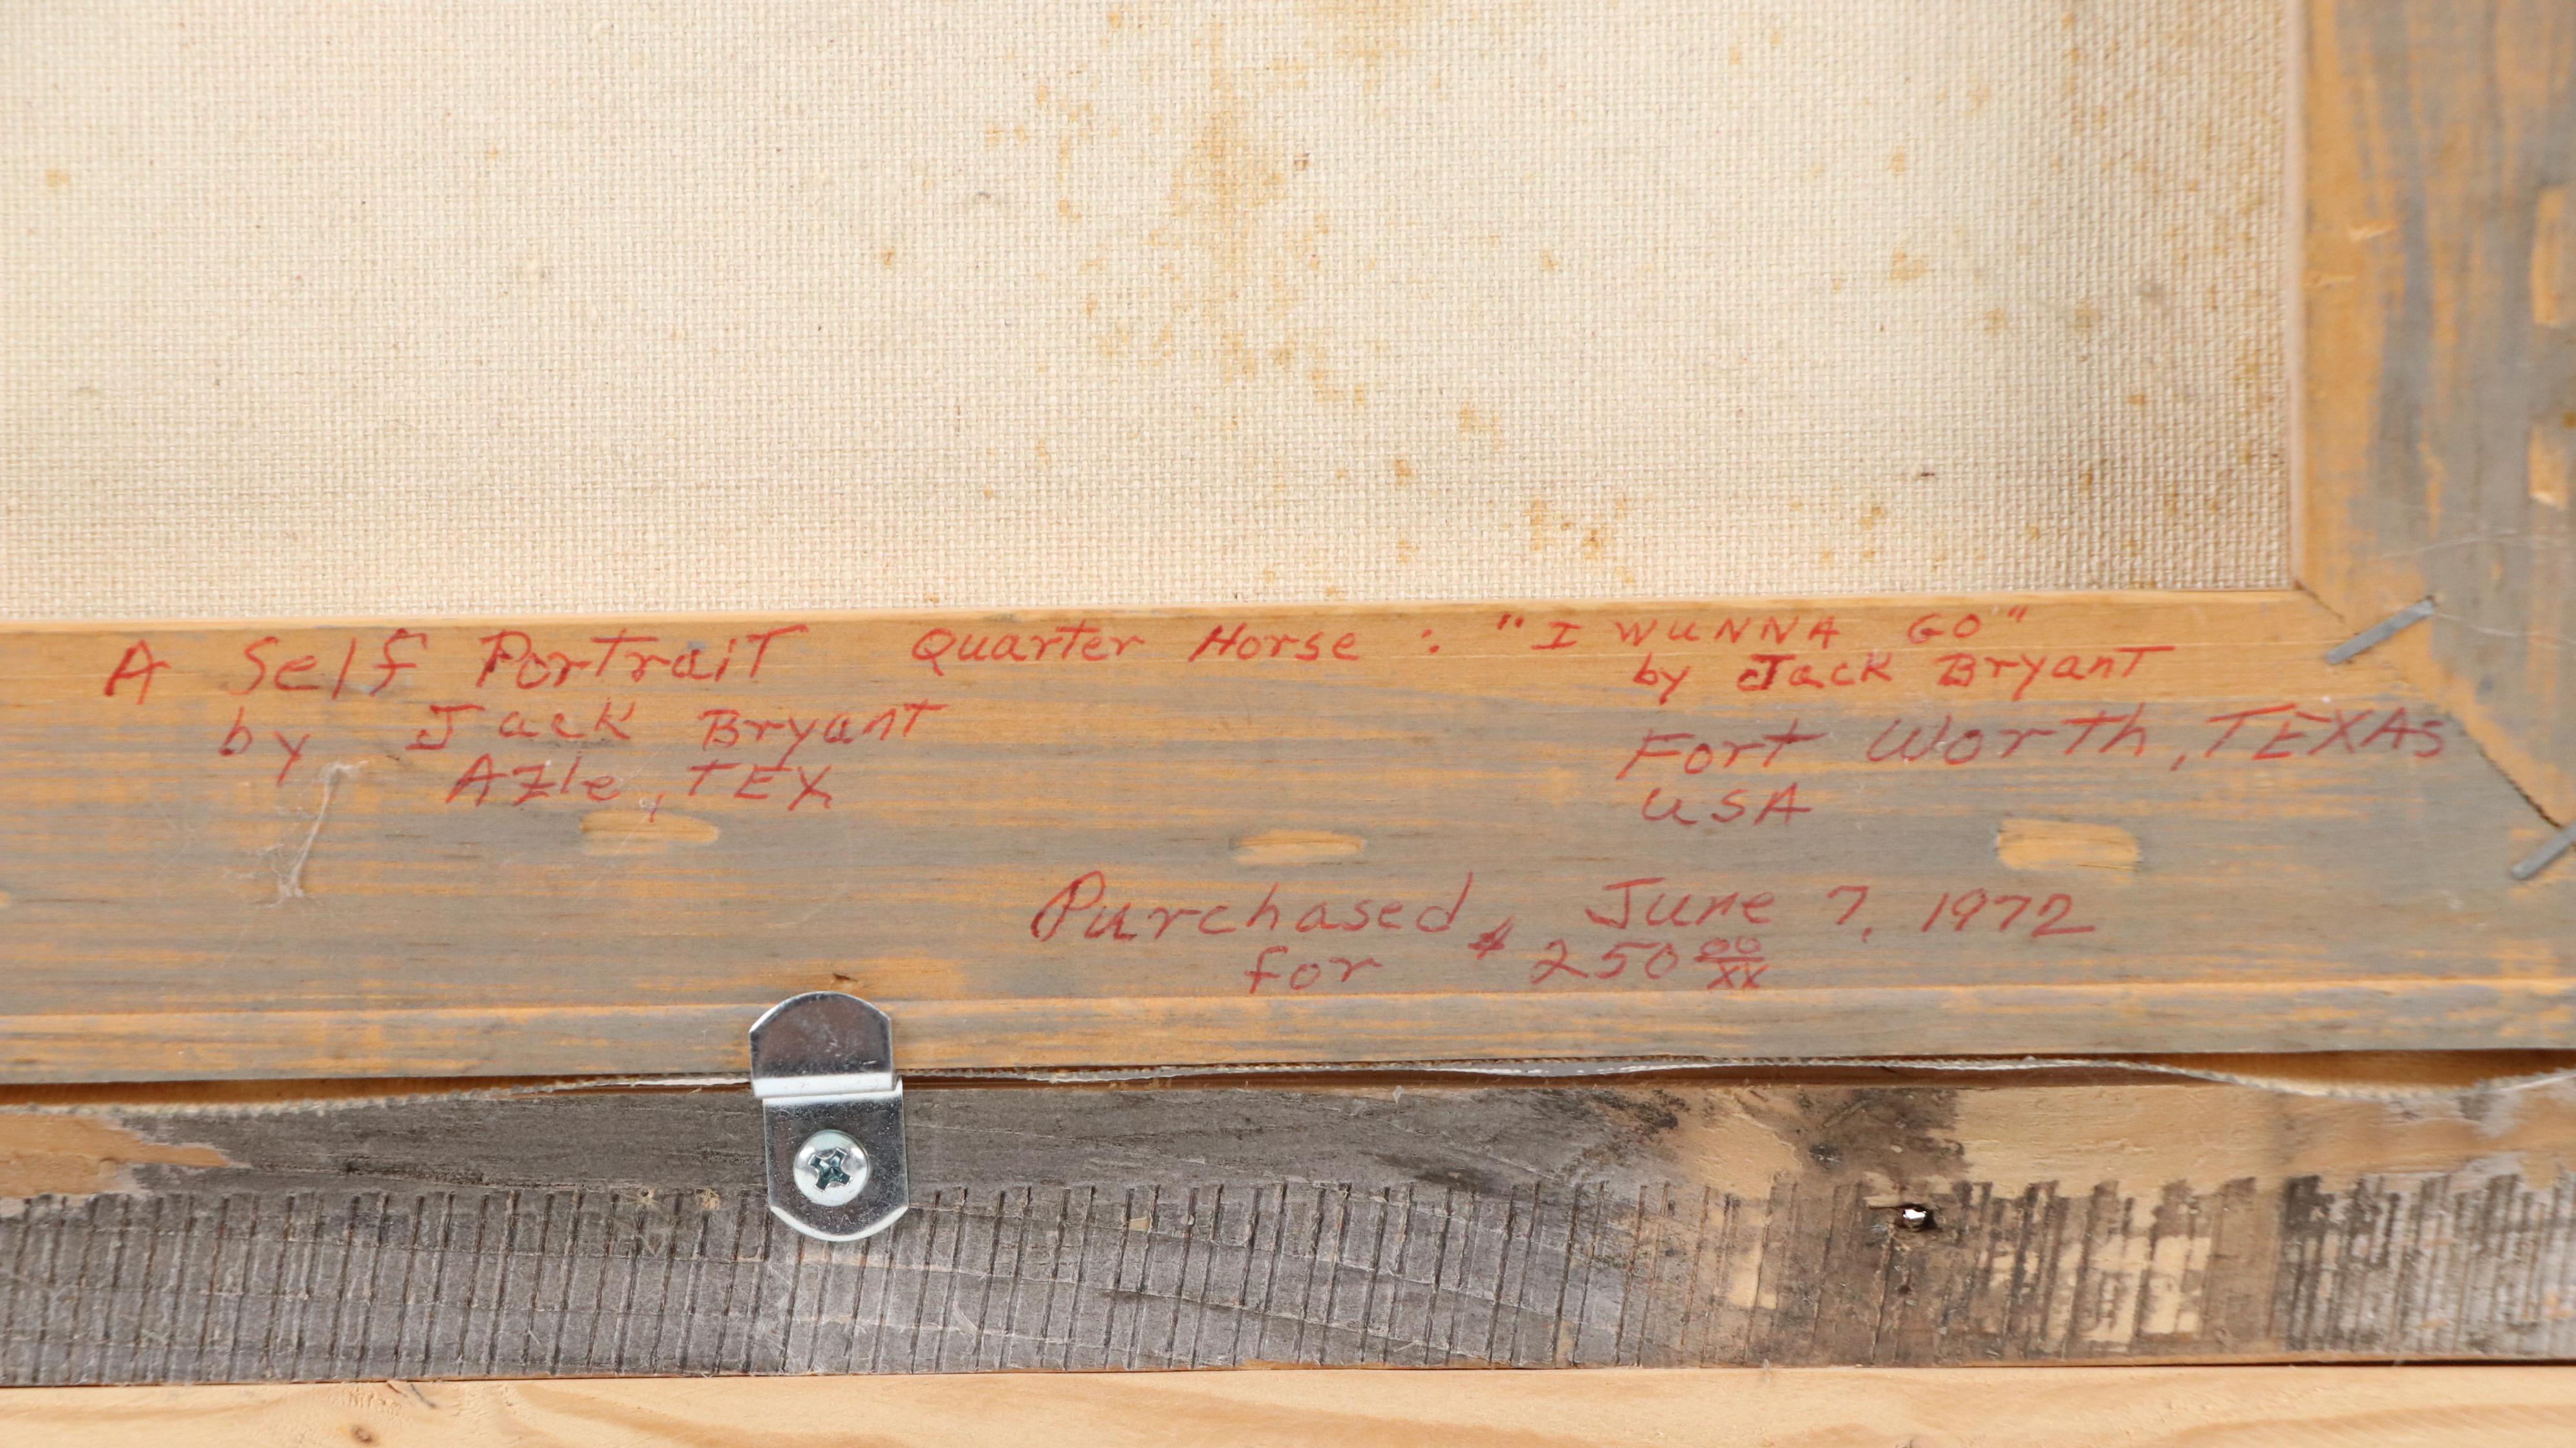 A Self Portrait
by Jack Bryant
Azle, TEX
Quarter Horse : "I WUNNA GO"
by Jack Bryant
Fort Worth, TEXAS
USA
Purchased, June 7, 1972
for $250 00/XX